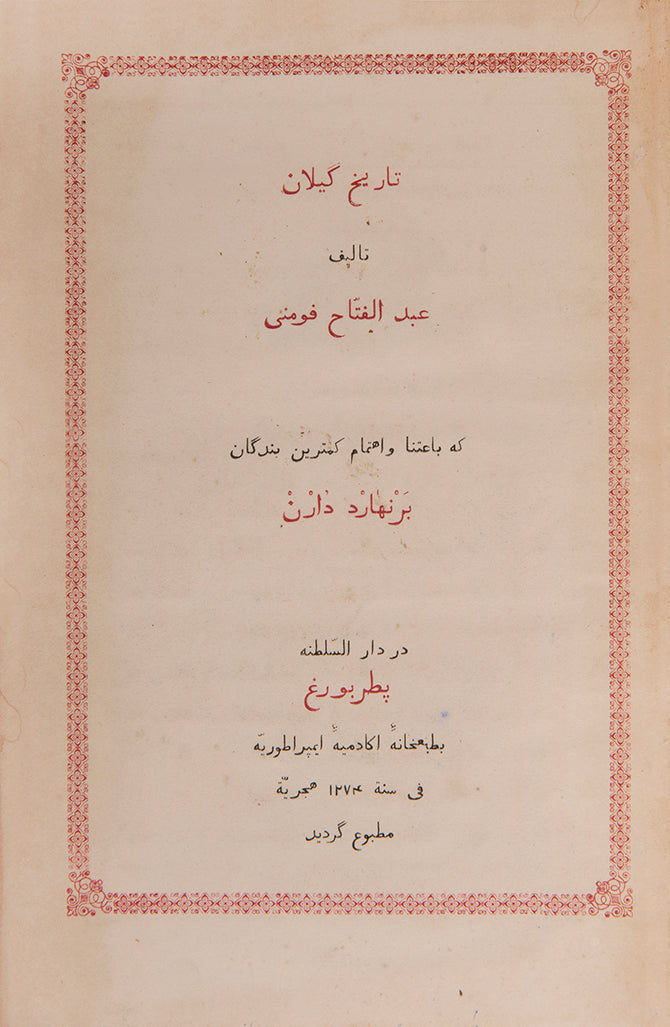 تاریخ گیلان
تالیف
عبد الفتّاح فومنی
که باعتنا واهتمام کمترین بندگان
بَرْنهارْد دُارْنْ
در دار السّلطنه
پطربورغ
بطبعخانهٔ اکادمیهٔ ایمپراطوریّه
فی سنة ۱۲۷۴ هجریّة
مطبوع گردید